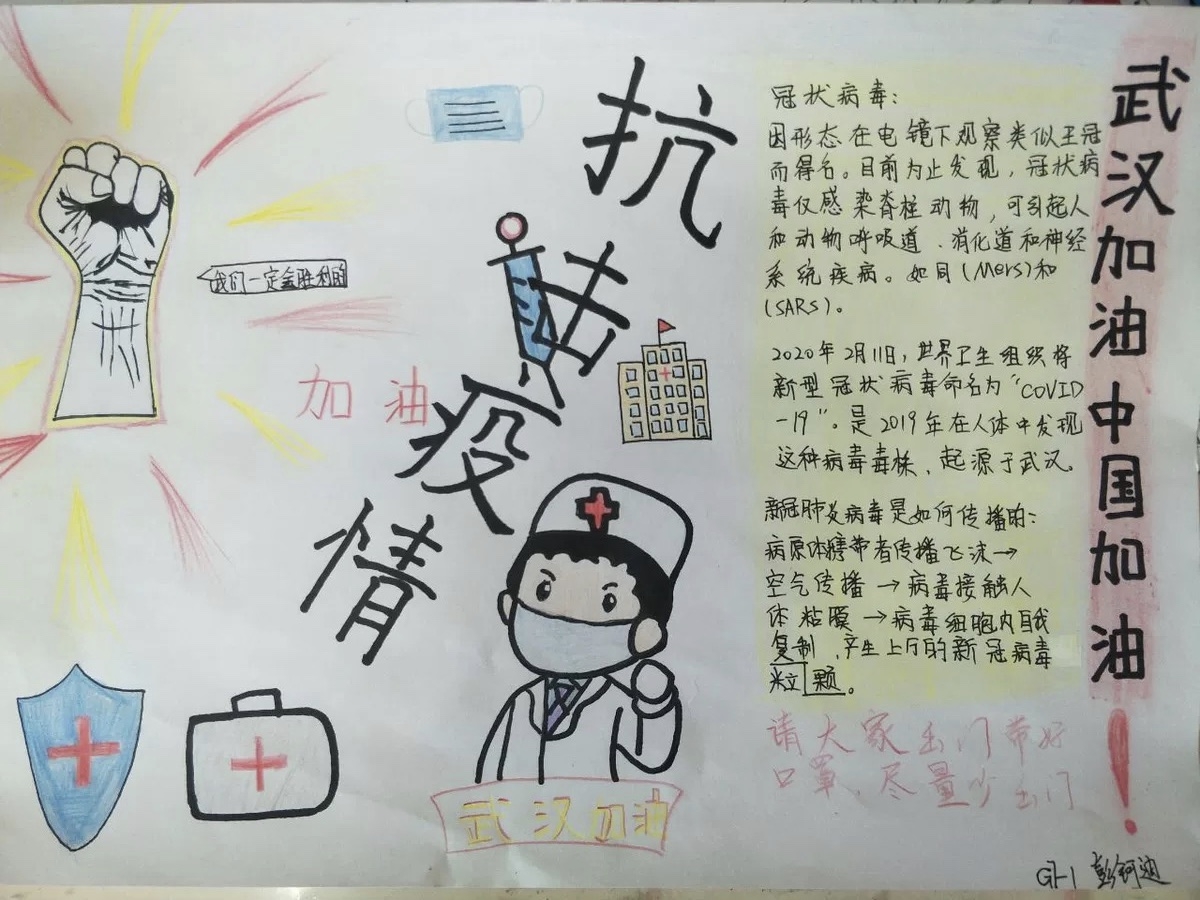 抗击疫情
我们一定会胜利的
加油
武汉加油
冠状病毒：
因形态在电镜下观察类似王冠
而得名。目前为止发现，冠状病
毒仅感染脊柱动物，可引起人
和动物呼吸道、消化道和神经
系统疾病。如同(Mers)和
(SARS)。
2020年2月11日，世界卫生组织将
新型冠状病毒命名为“COVID
-19”。是2019年在人体中发现
这种病毒毒株，起源于武汉。
新冠肺炎病毒是如何传播的：
病原体携带者传播飞沫→
空气传播→病毒接触人
体粘膜→病毒细胞内自我
复制，产生上万的新冠病毒
粒颗。
请大家出门带好
口罩，尽量少出门
武汉加油中国加油！
G7-1 彭钶迪